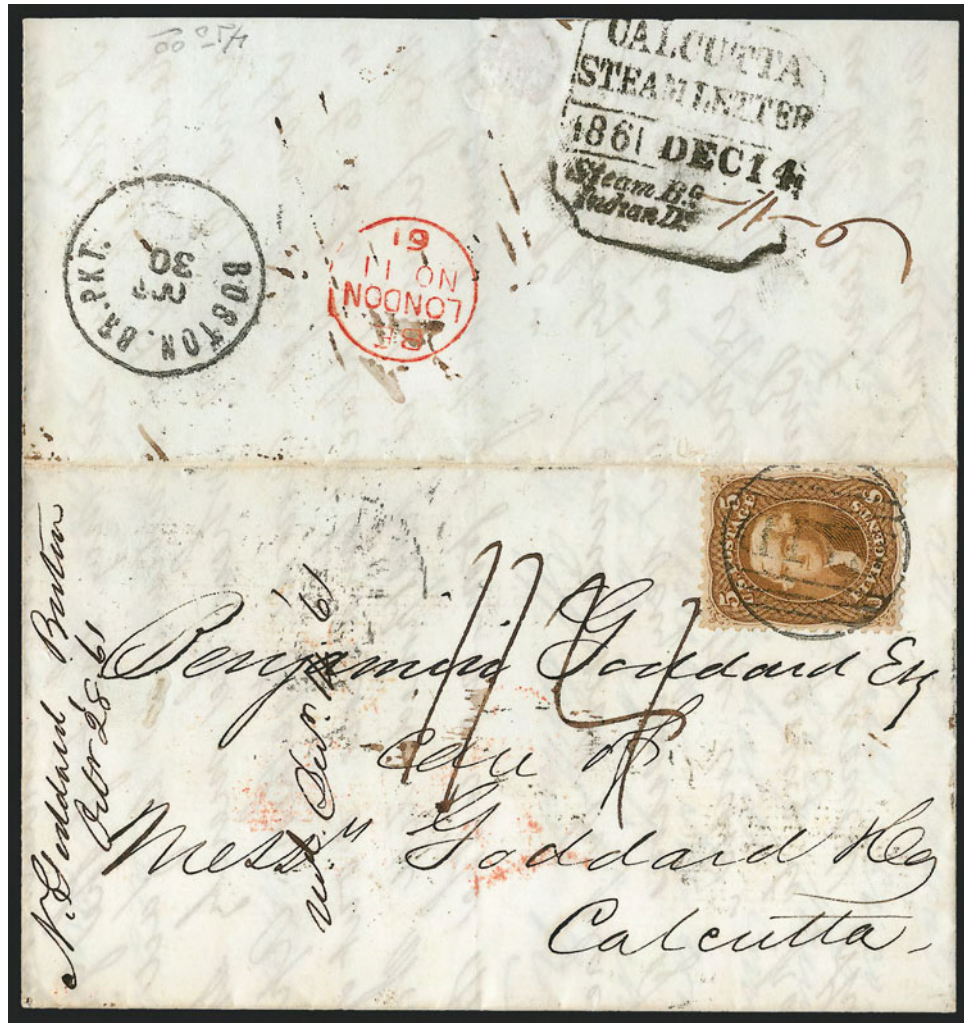 45.00
CALCUTTA
STEAM LETTER
1861 DEC 14
Steam Bg
Indian D.
BOSTON. BR. PKT.
30
61
NO 11
LONDON
5 U.S. POSTAGE 5
FIVE CENTS
PAID
N. Goddard Boston
Octbr 28 61
61
Benjamin Goddard Esq
Care of
Messrs Goddard & Co
Calcutta